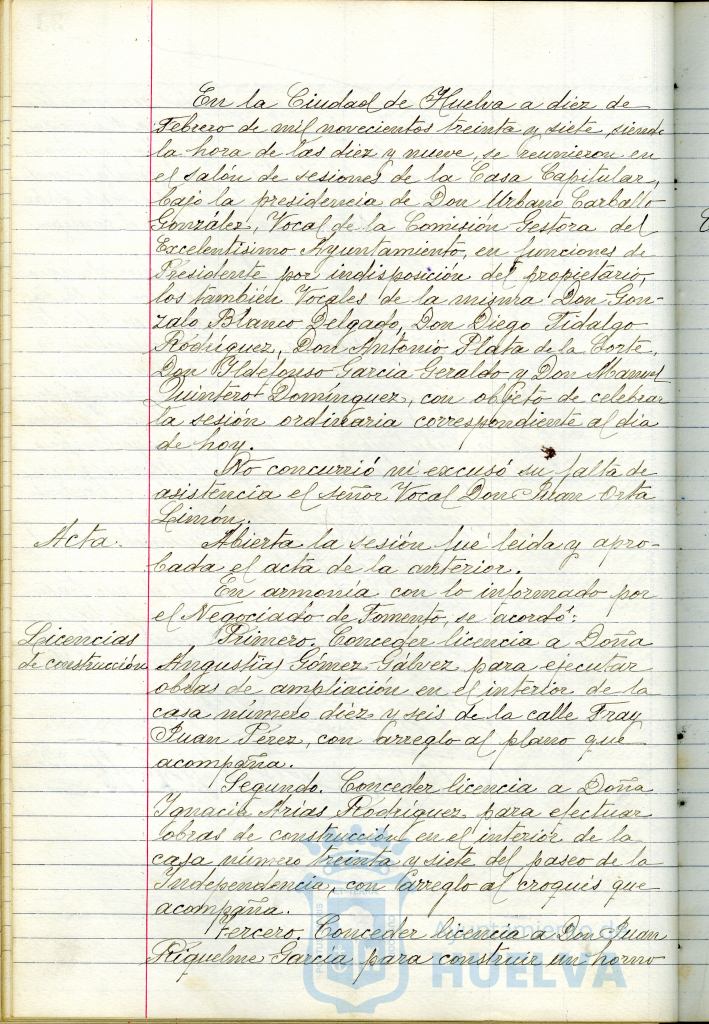 En la Ciudad de Huelva a diez de
Febrero de mil novecientos treinta y siete, siendo
la hora de las diez y nueve, se reunieron en
el salón de sesiones de la Casa Capitular,
bajo la presidencia de Don Urbano Carballo
González, Vocal de la Comisión Gestora del
Excelentísimo Ayuntamiento, en funciones de
Presidente por indisposición del propietario,
los también Vocales de la misma Don Gon-
zalo Blanco Delgado, Don Diego Fidalgo
Rodríguez, Don Antonio Plata de la Corte,
Don Ildefonso García Geraldo y Don Manuel
Quintero Domínguez, con objeto de celebrar
la sesión ordinaria correspondiente al día
de hoy.
No concurrió ni excusó su falta de
asistencia el señor Vocal Don Juan Orta
Limón.
Acta. Abierta la sesión fué leida y apro-
bada el acta de la anterior.
En armonía con lo informado por
el Negociado de Fomento, se acordó:
Licencias Primero. Conceder licencia a Doña
de construcción Angustias Gómez Gálvez para ejecutar
obras de ampliación en el interior de la
casa número diez y seis de la calle Fray
Juan Pérez, con arreglo al plano que
acompaña.
Segundo. Conceder licencia a Doña
Ignacia Arias Rodríguez para efectuar
obras de construcción en el interior de la
casa número treinta y siete del paseo de la
Independencia, con arreglo al croquis que
acompaña.
Tercero. Conceder licencia a Don Juan
Riquelme García para construir un horno
Ayuntamiento de
HUELVA